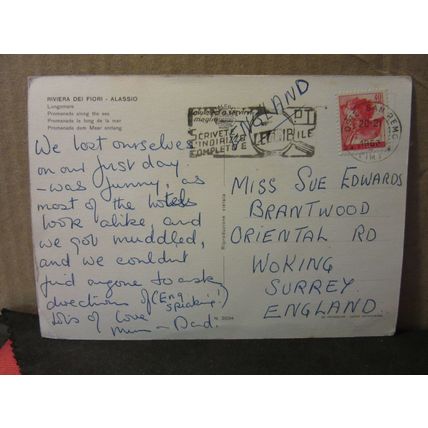 RIVIERA DEI FIORI - ALASSIO
Lungomare
Promenade along the sea
Promenade le long de la mer
Promenade dem Meer entlang
We lost ourselves
on our first day.
- was funny, as
most of the hotels
look alike, and
we got muddled,
and we couldn't
find anyone to ask
direction of (Eng
speaking!)
Lots of love
Mum - Dad.
ENGLAND
SCRIVETE
L'INDIRIZZO
COMPLETO E
LEGGIBILE
20-21
MISS SUE EDWARDS
BRANTWOOD
ORIENTAL RD
WOKING
SURREY.
ENGLAND.